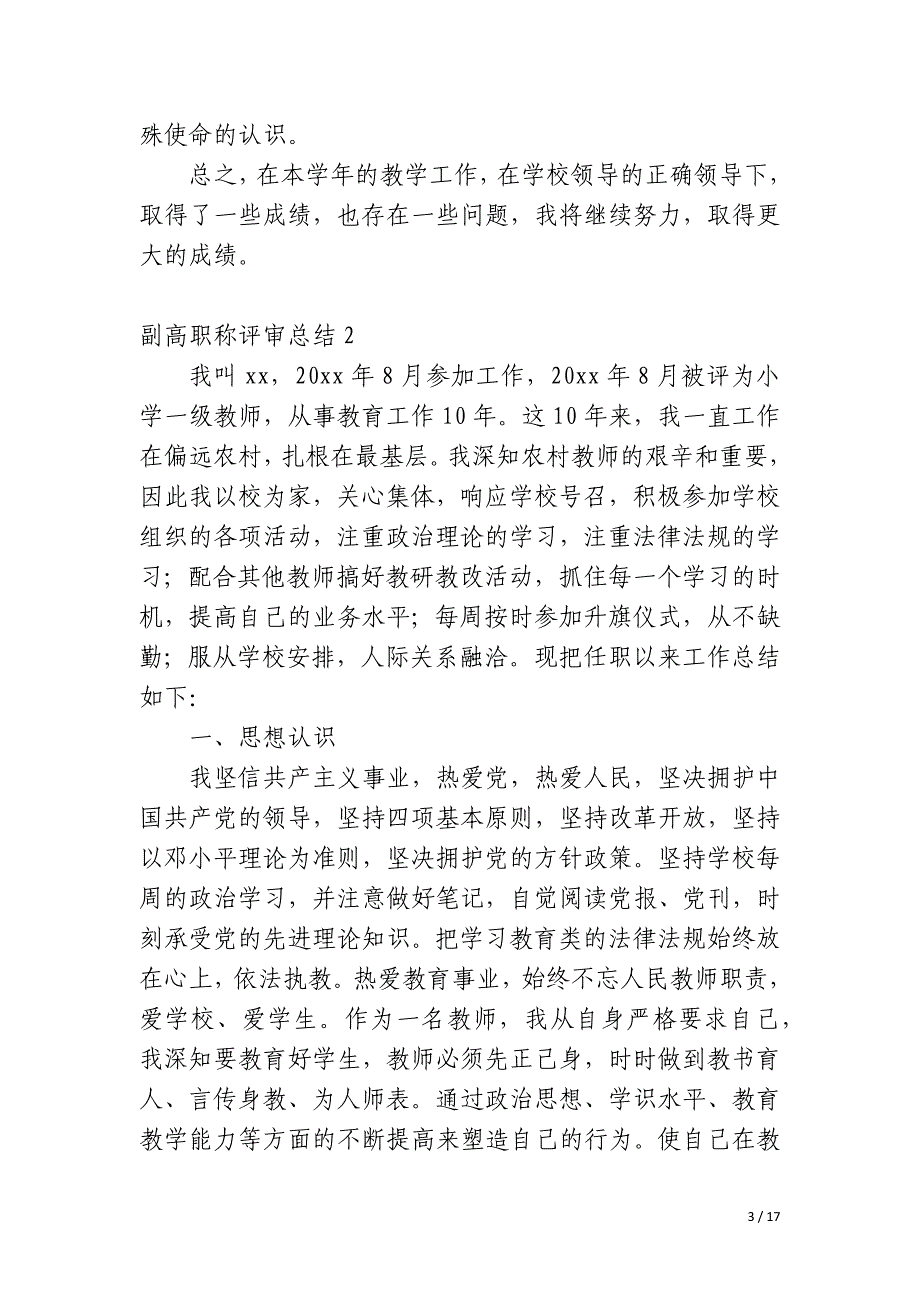 殊使命的认识。
总之，在本学年的教学工作，在学校领导的正确领导下，
取得了一些成绩，也存在一些问题，我将继续努力，取得更
大的成绩。
副高职称评审总结 2
我叫 xx，20xx 年 8 月参加工作，20xx 年 8 月被评为小
学一级教师，从事教育工作 10 年。这 10 年来，我一直工作
在偏远农村，扎根在最基层。我深知农村教师的艰辛和重要，
因此我以校为家，关心集体，响应学校号召，积极参加学校
组织的各项活动，注重政治理论的学习，注重法律法规的学
习；配合其他教师搞好教研教改活动，抓住每一个学习的时
机，提高自己的业务水平；每周按时参加升旗仪式，从不缺
勤；服从学校安排，人际关系融洽。现把任职以来工作总结
如下：
一、思想认识
我坚信共产主义事业，热爱党，热爱人民，坚决拥护中
国共产党的领导，坚持四项基本原则，坚持改革开放，坚持
以邓小平理论为准则，坚决拥护党的方针政策。坚持学校每
周的政治学习，并注意做好笔记，自觉阅读党报、党刊，时
刻承受党的先进理论知识。把学习教育类的法律法规始终放
在心上，依法执教。热爱教育事业，始终不忘人民教师职责，
爱学校、爱学生。作为一名教师，我从自身严格要求自己，
我深知要教育好学生，教师必须先正己身，时时做到教书育
人、言传身教、为人师表。通过政治思想、学识水平、教育
教学能力等方面的不断提高来塑造自己的行为。使自己在教
3 / 17